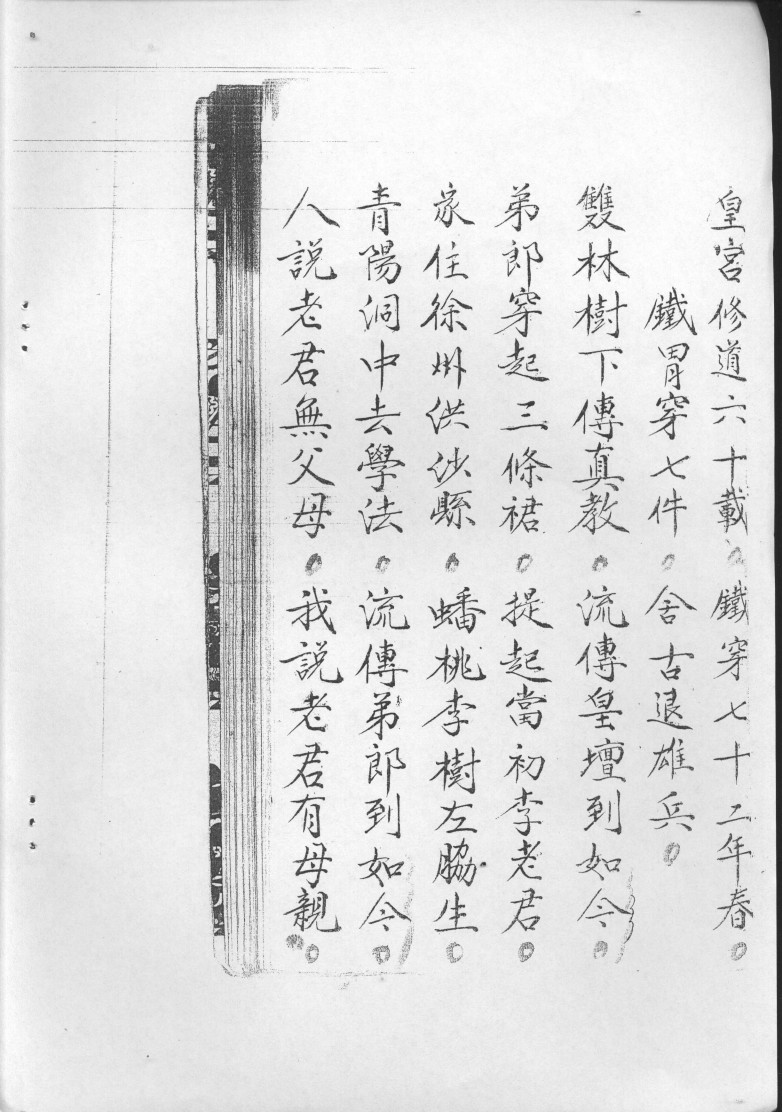 皇宮修道六十載。鐵穿七十二年春。
鐵冑穿七件。舍古退雄兵。
雙林樹下傳真教。流傳皇壇到如今。
弟郎穿起三條裙。提起當初李老君。
家住徐州洪沙縣。蟠桃李樹左脇生。
青陽洞中去學法。流傳弟郎到如今。
人說老君無父母。我說老君有母親。